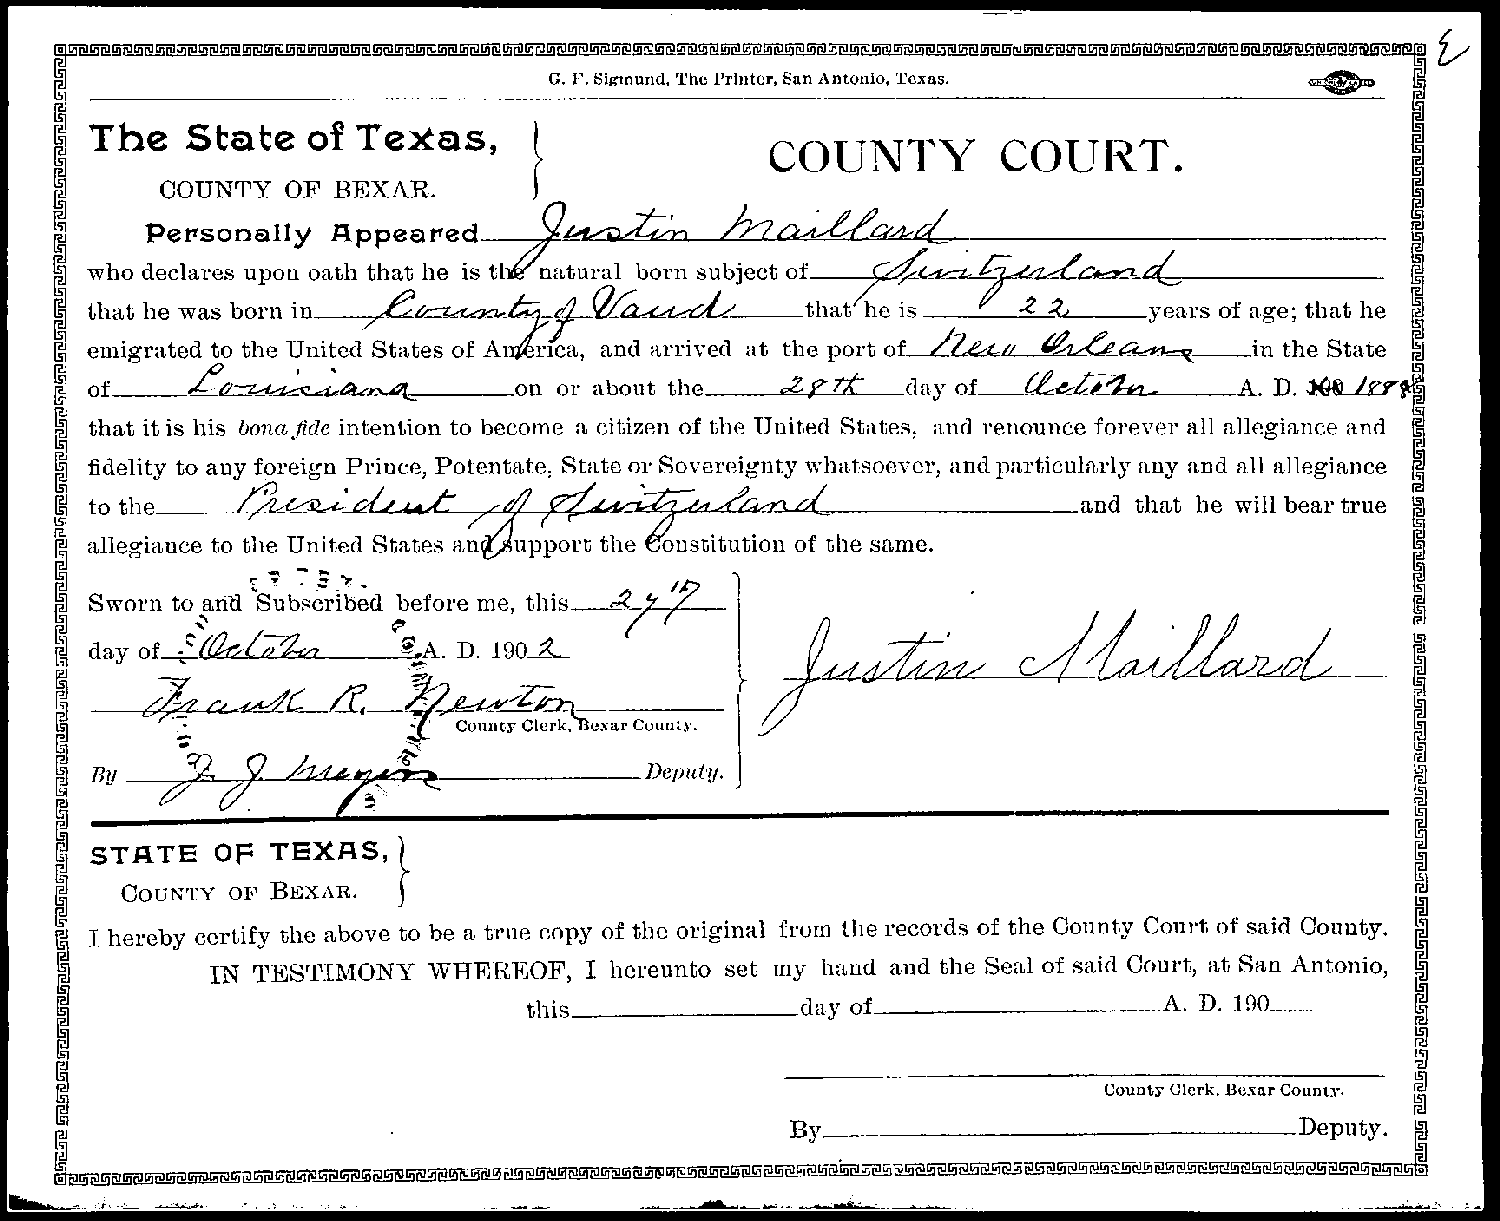 G. F. Sigmund, The Printer, San Antonio, Texas.
The State of Texas,
COUNTY OF BEXAR.
COUNTY COURT.
Personally Appeared Justin Maillard
who declares upon oath that he is the natural born subject of Switzerland
that he was born in County of Vaud that he is 22 years of age; that he
emigrated to the United States of America, and arrived at the port of New Orleans in the State
of Louisiana on or about the 28th day of October A. D.
that it is his bona fide intention to become a citizen of the United States, and renounce forever all allegiance and
fidelity to any foreign Prince, Potentate, State or Sovereignty whatsoever, and particularly any and all allegiance
to the President of Switzerland and that he will bear true
allegiance to the United States and support the Constitution of the same.
Sworn to and Subscribed before me, this 27th
day of October A. D. 1902
Frank R. Newton
County Clerk, Bexar County.
By J. Meyers Deputy.
Justin Maillard
STATE OF TEXAS,
COUNTY OF BEXAR.
I hereby certify the above to be a true copy of the original from the records of the County Court of said County.
IN TESTIMONY WHEREOF, I hereunto set my hand and the Seal of said Court, at San Antonio,
this day of A. D. 190
County Clerk, Bexar County.
By Deputy.